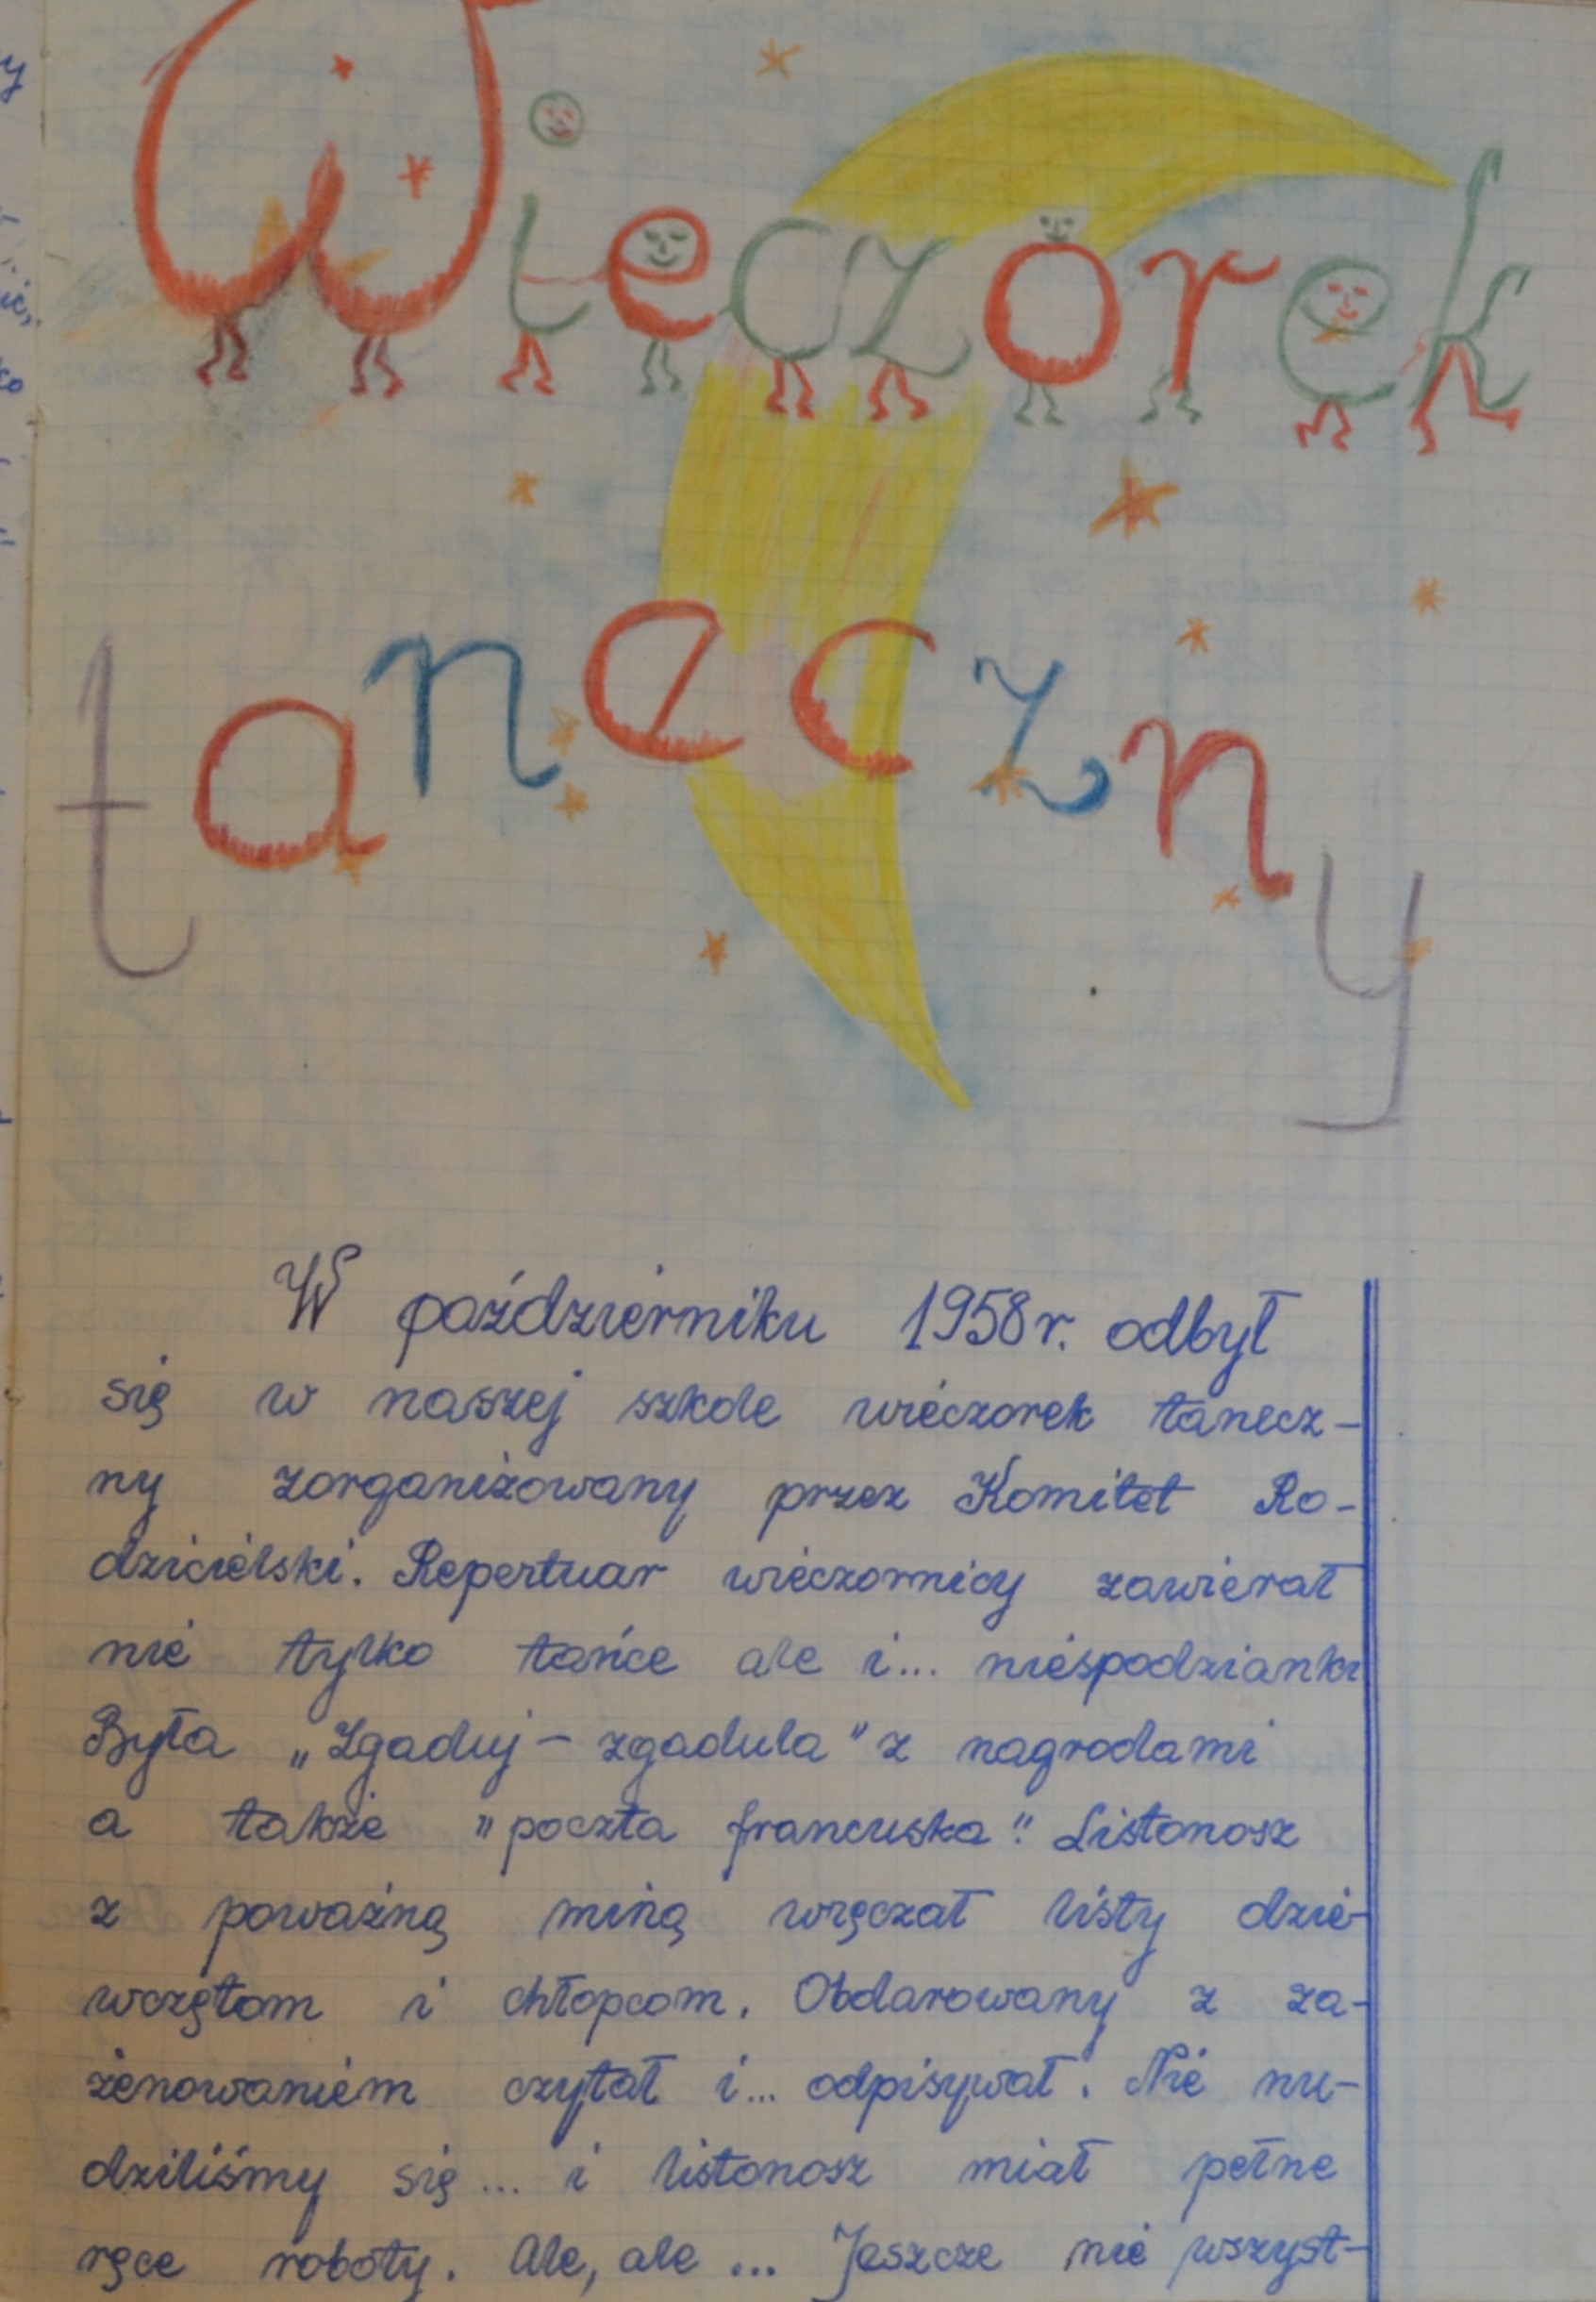 Wieczorek
taneczny
W październiku 1958 r. odbył
się w naszej szkole wieczorek tanecz-
ny zorganizowany przez Komitet Ro-
dzicielski. Repertuar wieczornicy zawierał
nie tylko tańce ale i... niespodzianki
Była „Zgaduj - zgadula" z nagrodami
a także "poczta francuska". Listonosz
z poważną miną wręczał listy dzie-
wczętom i chłopcom. Obdarowany z za-
żenowaniem czytał i... odpisywał. Nie nu-
dziliśmy się ... i listonosz miał pełne
ręce roboty. Ale, ale ... Jeszcze nie wszyst-